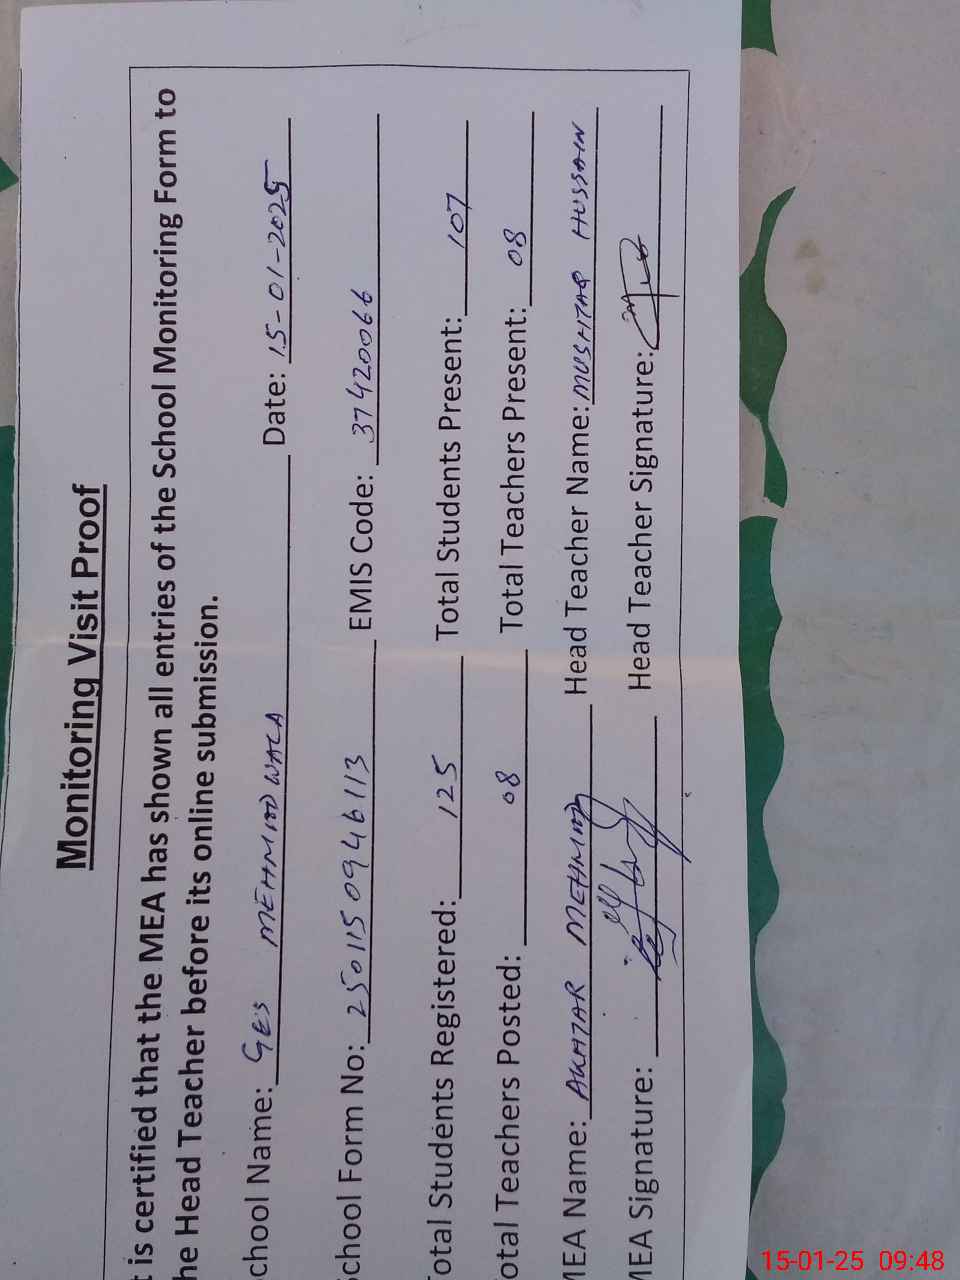 Monitoring Visit Proof
t is certified that the MEA has shown all entries of the School Monitoring Form to
he Head Teacher before its online submission.
chool Name: GES MEHMOOD WALA Date: 15-01-2025
School Form No: 2501150946113 EMIS Code: 37420066
Total Students Registered: 125 Total Students Present: 107
otal Teachers Posted: 08 Total Teachers Present: 08
MEA Name: AKHTAR MEHMOOD Head Teacher Name: MUSHTAQ HUSSAIN
MEA Signature: Head Teacher Signature:
15-01-25 09:48